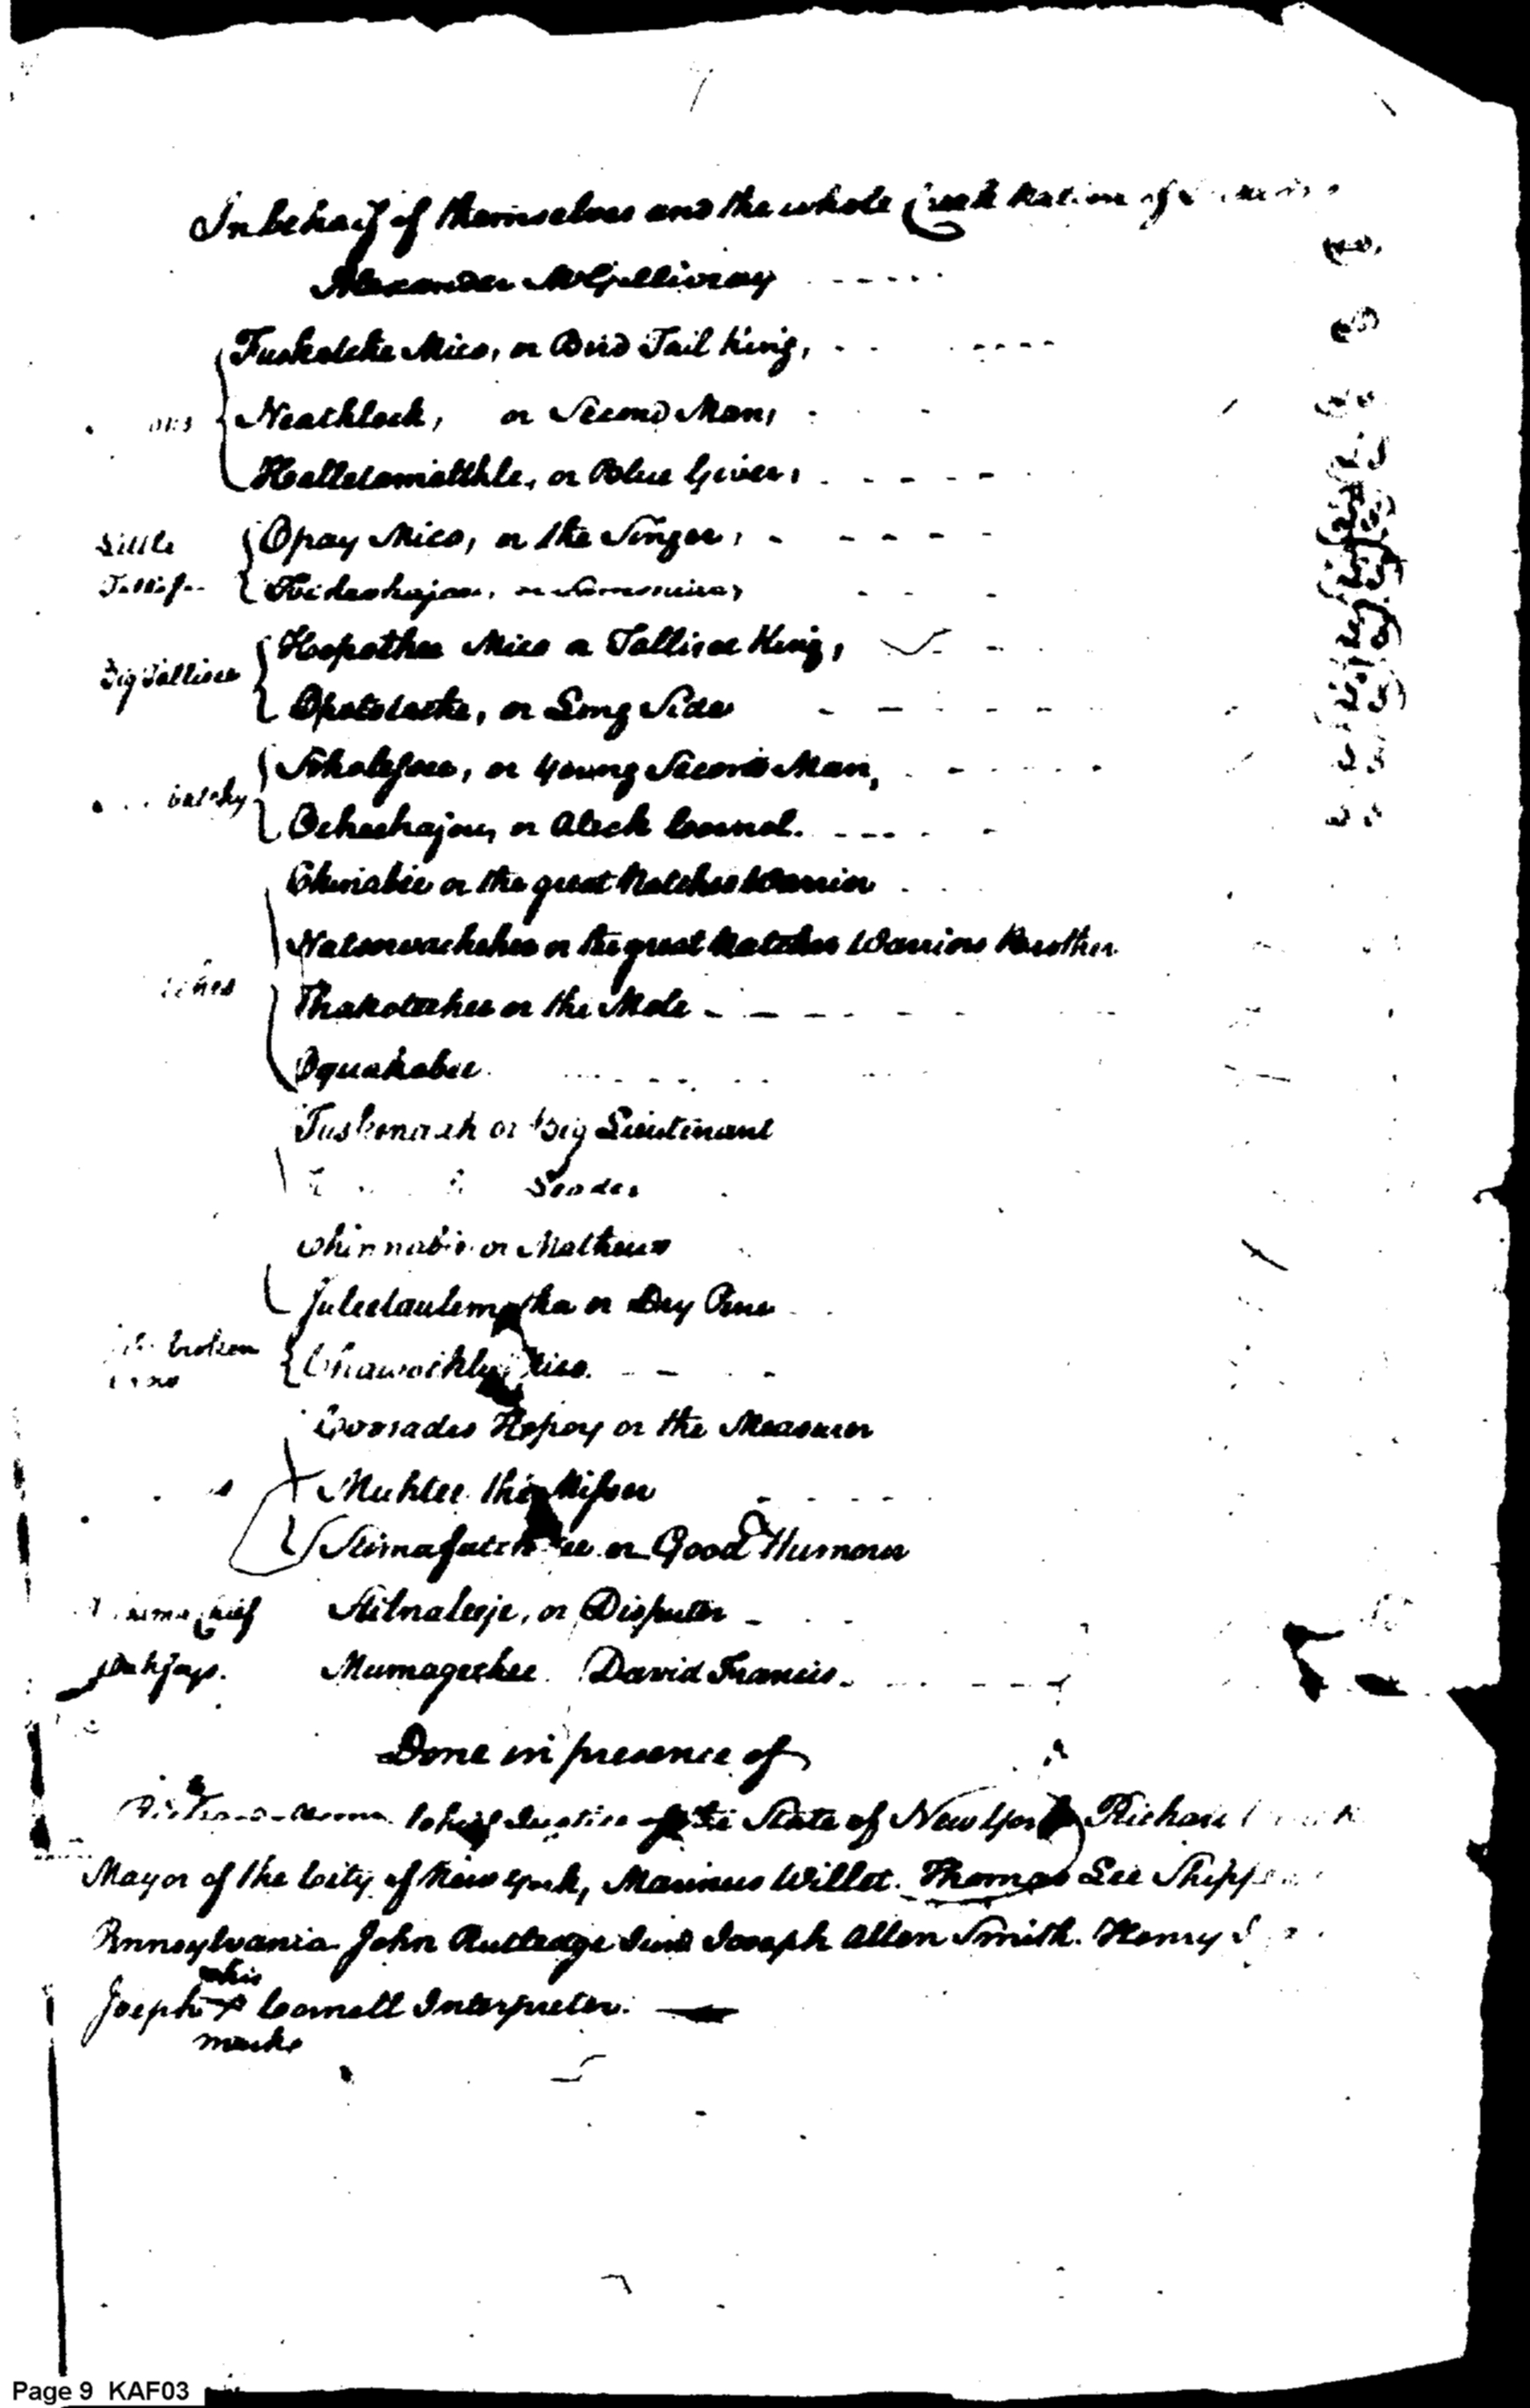 7
In behalf of themselves and the whole Creek Nation of
Alexander McGillivray
Fuskatche Mico, or Bird Tail King,
Neathlock, or Second Man,
Halletamalthle, or Blue Giver,
Little Opay Mico, or the Singer,
Totkeshajou, or
Big Tallisee Hopothe Mico or Tallisee King,
Opototache, or Long Side
Soholessee, or Young Second Man,
Ocheehajou, or Aleck Cornel.
Chinabie or the great Natchez Warrior
Natsowachehee or the great Natchez Warriors Brother
Thakoteehee or the Mole
Oquakabee
Tuskenaah or Big Lieutenant
Leader
Chinnabie or Mathews
Juleetaulematha or Dry Pine
broken Chawockly Mico.
Coosades Hopoy or the Measurer
Muthtee the Misser
Stimafutchkee or Good Humour
Stilnaleeje, or Disputer
Mumagechee David Francis.
Done in presence of
Chief Justice of the State of New York Richard
Mayor of the City of New York, Marinus Willet. Thomas Lee Shippen
Pennsylvania. John Rutledge Junr Joseph Allen Smith. Henry
his
Joseph x Cornell Interpreter.
mark
Page 9 KAF03